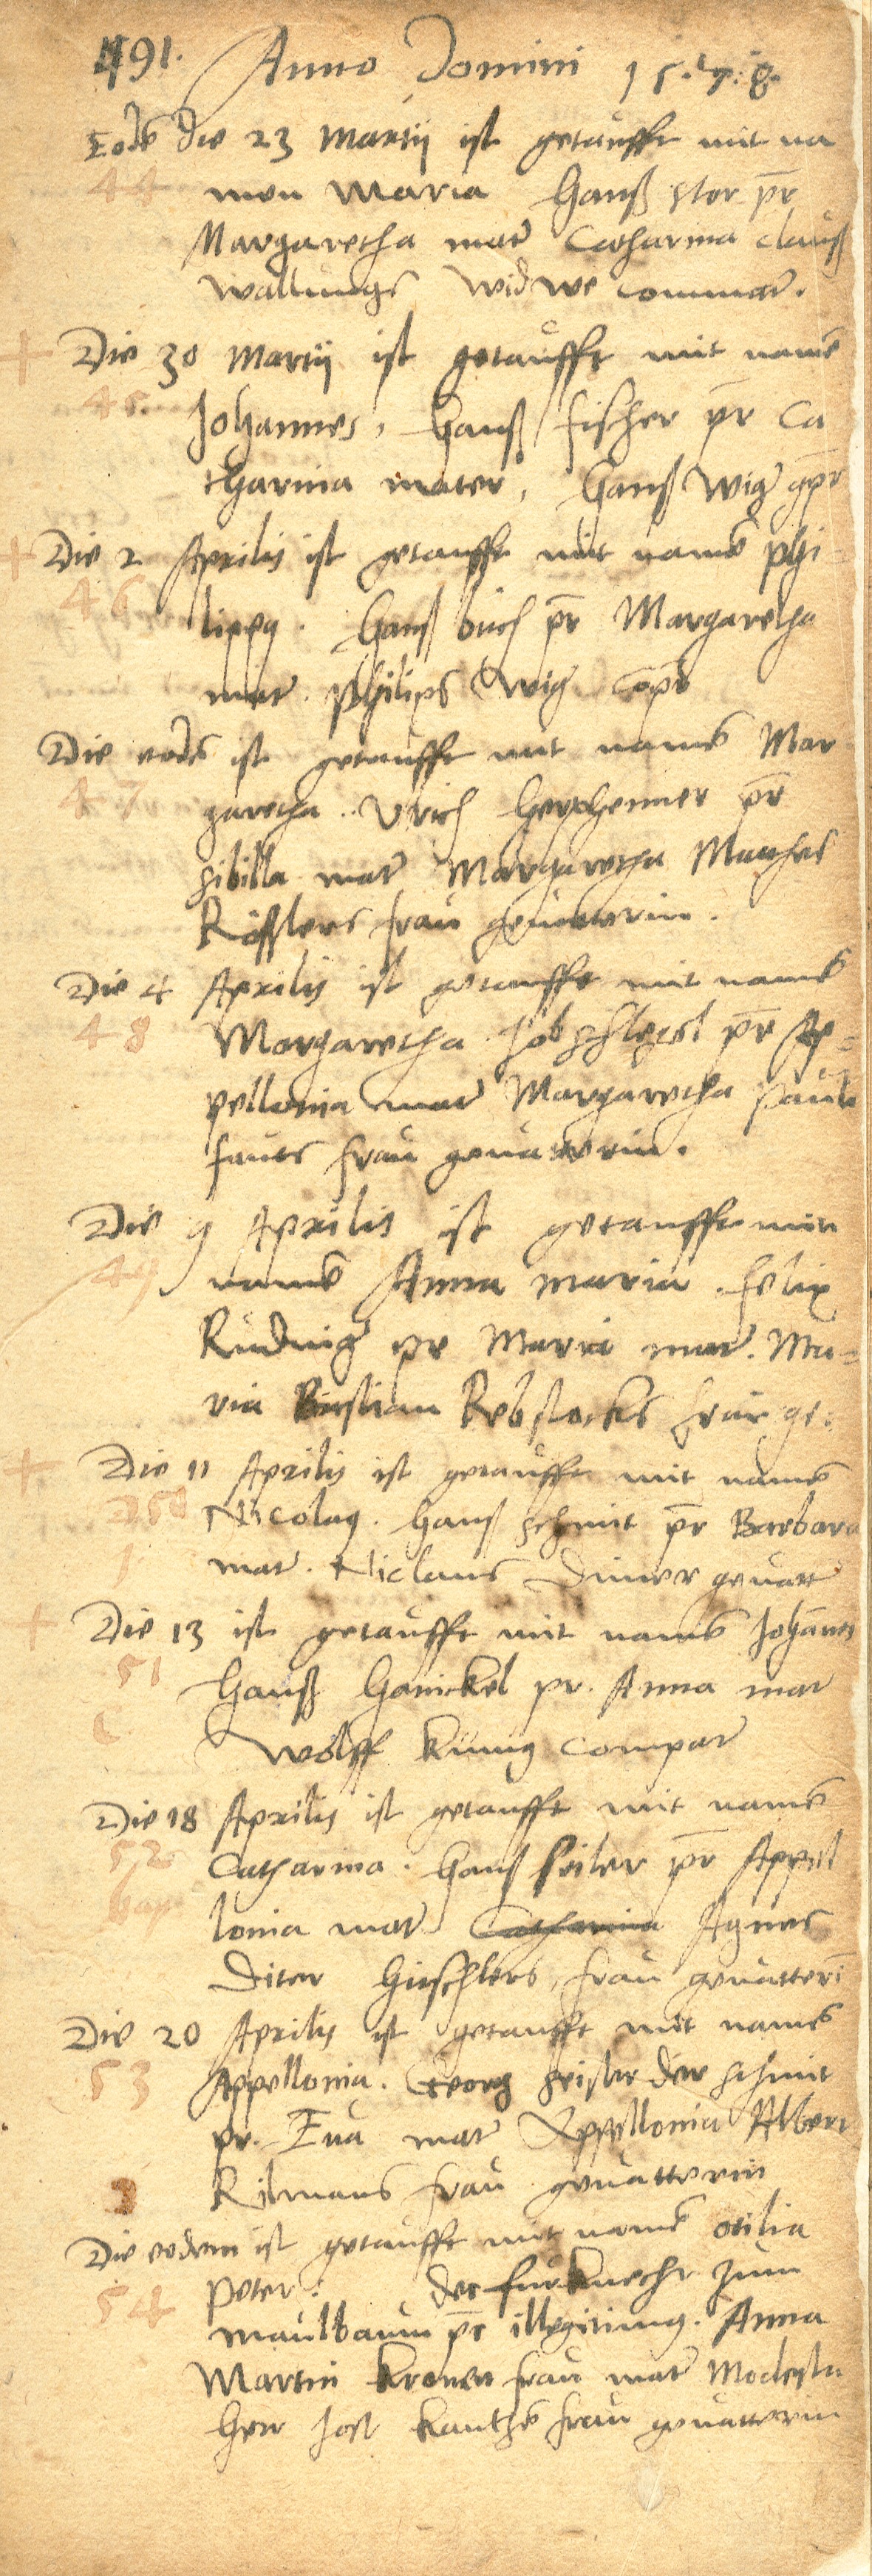 491. Anno Domini 15.7.8.
Eodē die 23 Martij ist getaufft mit na
44 men Maria Hanß stor pr̄
Margaretha mat̄ Catharina Clauß
Wallungs Widwe commat̄.
+ Die 30 Martij ist getaufft mit namē
45 Johannes, Hanß Fischer pr̄ Ca
tharina mater, Hanß Wig gpr̄
+ Die 2 Aprilis ist getaufft mit namē Phi-
46 lippg. Hanß buch pr̄ Margaretha
mat̄. Philips Wig copr̄
Die eodē ist getaufft mit namē Mar
47 garetha. Ulrich pr̄
Sibilla mat̄ Margaretha Mathes
Röfflers frau geuatterin.
Die 4 Aprilis ist getaufft mit namē
48 Margaretha Job schlegel pr̄ Ap=
pellonia mat̄ Margaretha Pauls
fauts frau geuatterin.
Die 9 Aprilis ist getaufft mitt
49 namē Anna Maria. Felix
Rudnig pr Maria mat̄. Ma=
ria Bastian Rebstocks frau ge:
+ Die 11 Aprilis ist getaufft mit namē
250 Nicolag. Hanß schmit pr̄ Barbara
1 mat̄. Niclaus Dimer geuatt̄
+ Die 13 ist getaufft mit namē Johānes
51 Hanß Hanickel pr. Anna mat
Wolff Kunig compat̄
Die 18 Aprilis ist getaufft mit namē
52 Catharina. Hanß seiler pr̄ Appel
lonia mat̄ Catharina Agnes
Diter Hirschlers, frau geuatterī
Die 20 Aprilis ist getaufft mit namē
53 Appellonia. Georg seister der schmit
pr. Eua mat̄ Appellonia Albert
Kilmans frau geuatterin
Die eodem ist getaufft mit namē otilia
54 Peter: der furknecht zum
Maulbaum pr̄ illegitimg. Anna
Martin Kronen frau mat̄ Modesta
Herr Jost Kautzē frau geuatterin